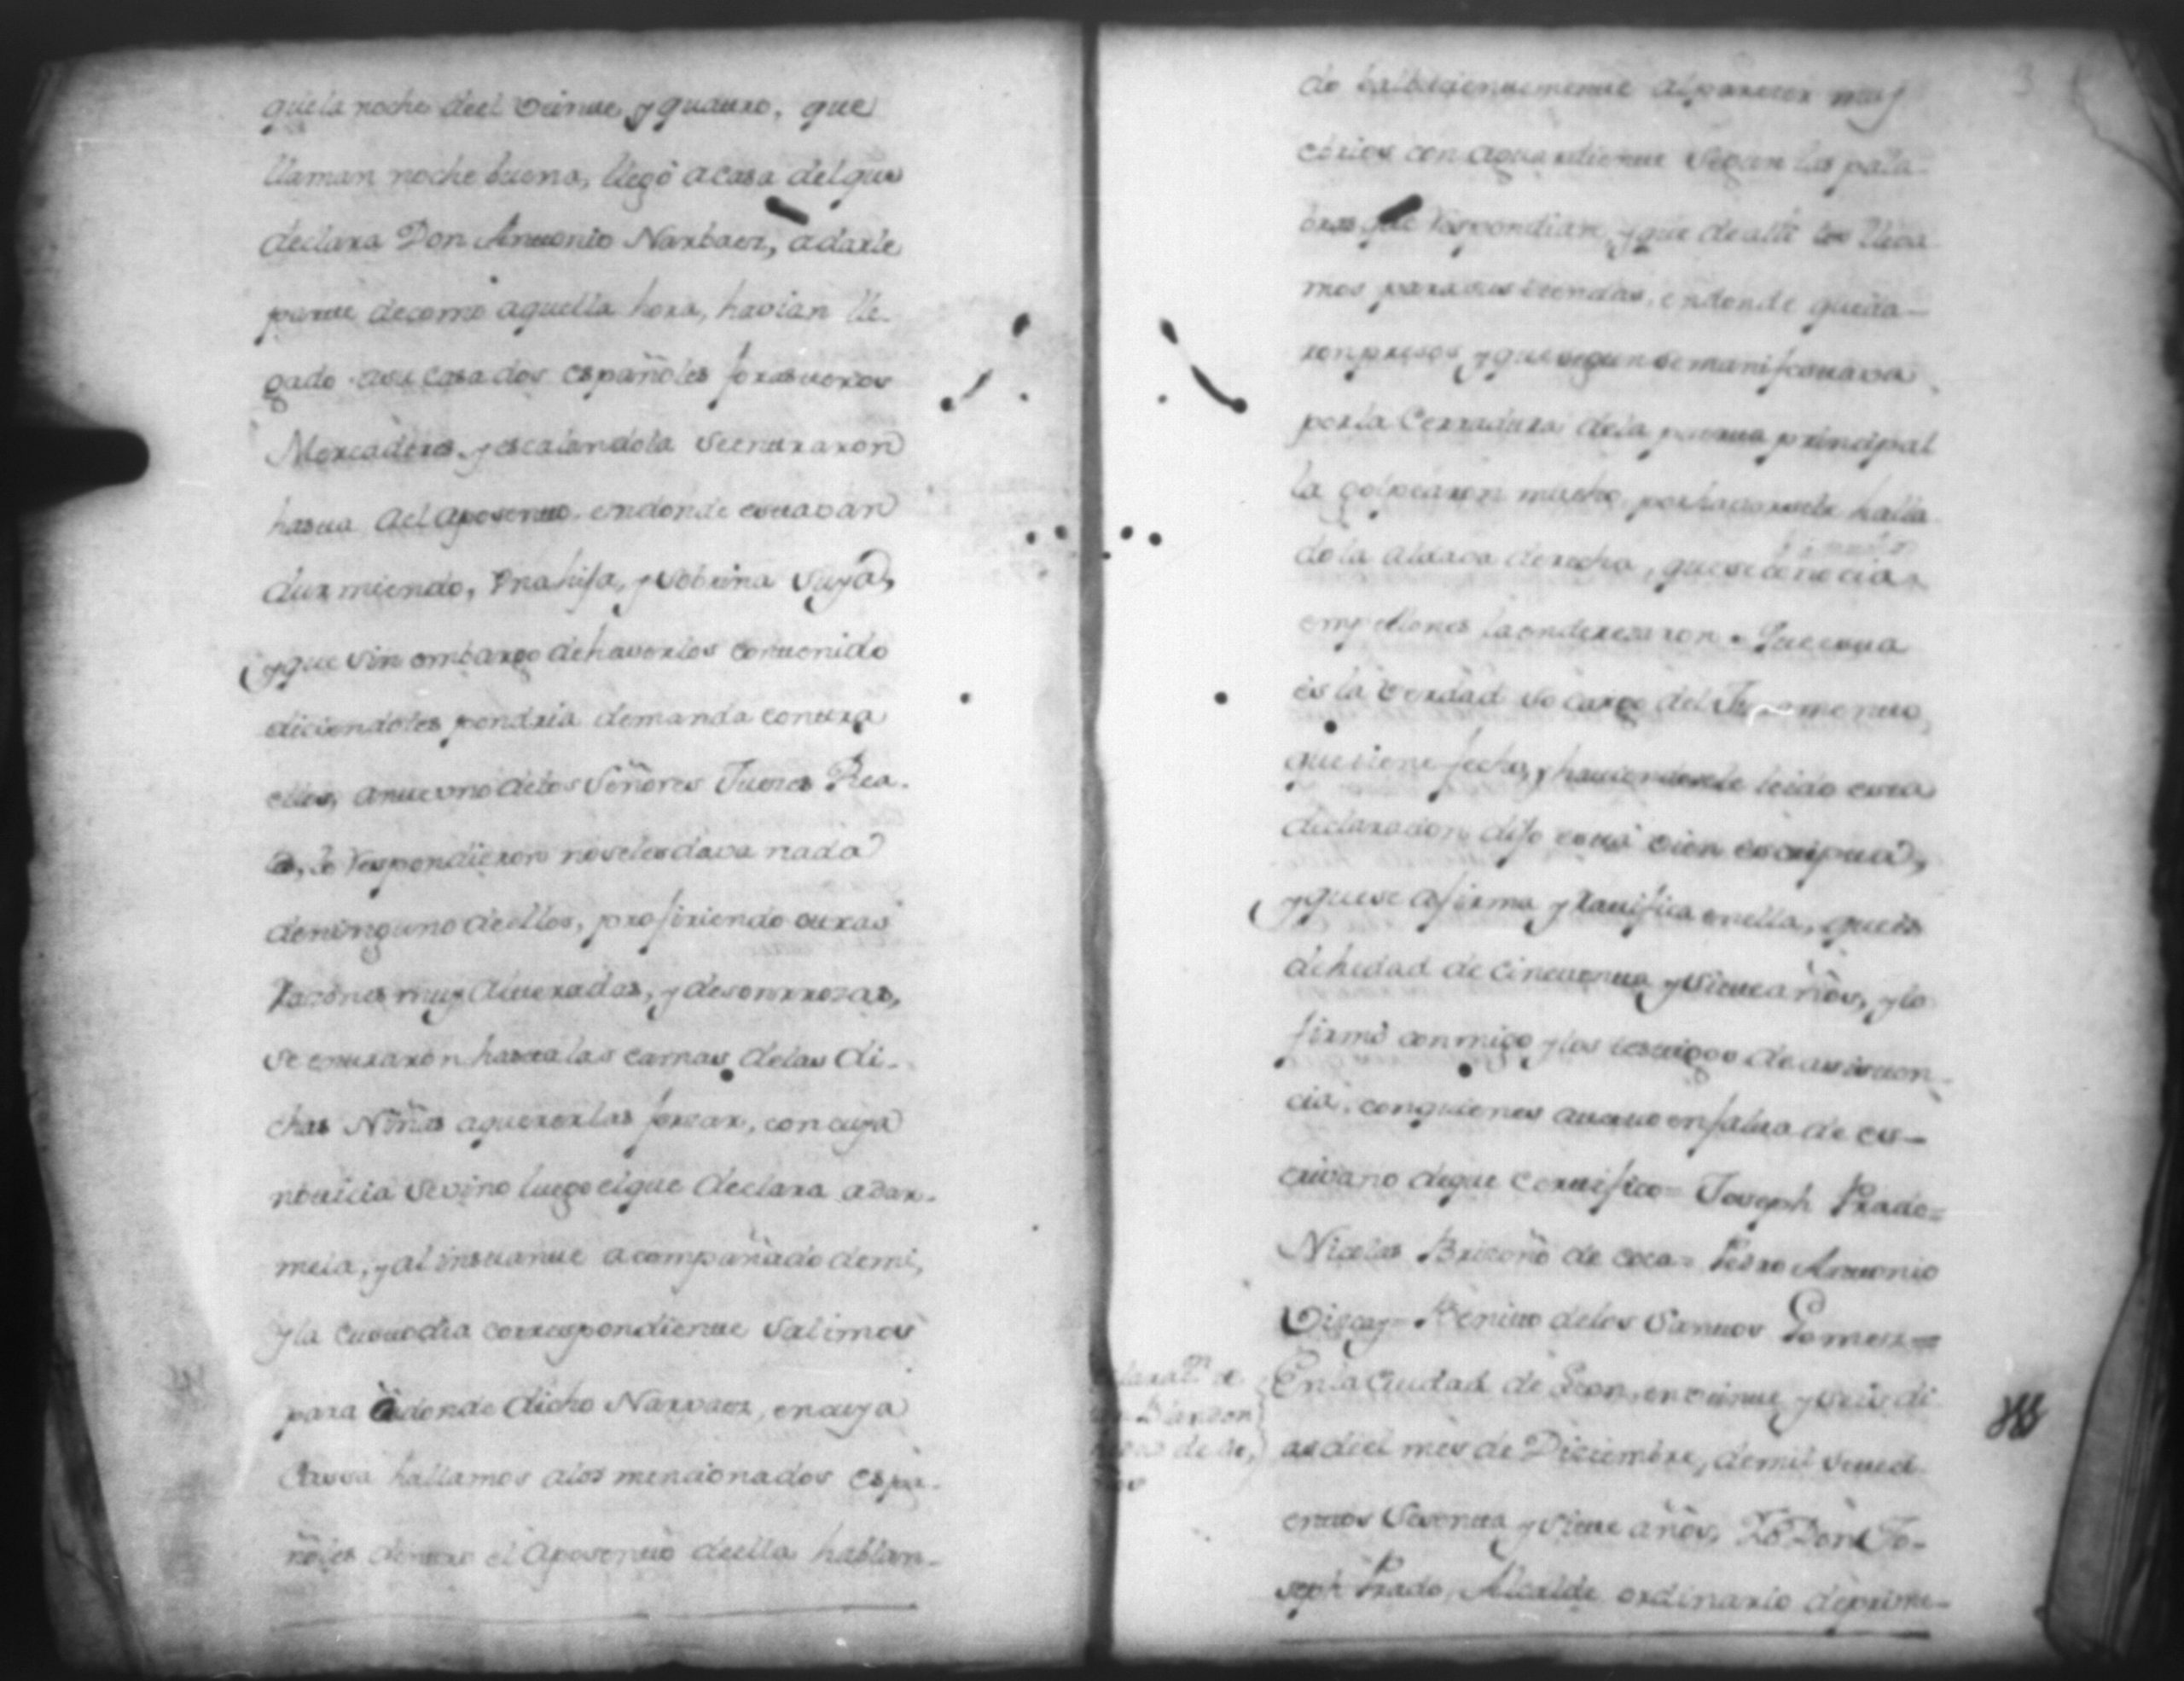 que la noche deel veinte, y quatro, que
llaman noche buena, llegó a casa del que
declara Don Antonio Narbaez, a darle
parte de como aquella hora, havian lle-
gado a su casa dos españoles forasteros
Mercaderes, y escalandola se entraron
hasta del aposento, en donde estavan
durmiendo, vna hija, y sobrina suya,
y que sin embargo de haverlos contenido
diciendoles pondria demanda contra
ellos, ante vno delos Señores Jueces Rea-
les, le respondieron no se les dava nada
de ninguno de ellos, profiriendo otras
razones muy alteradas, y desonrrozas,
se entraron hasta las camas delas di-
chas Niñas a quererlas forzar, con cuya
noticia se vino luego el que declara a dar-
mela, y al instante acompañado de mi,
y la custodia correspondiente salimos
para adonde dicho Narvaez, en cuya
Cassa hallamos a los mencionados espa-
ñoles dentro el aposento de ella hablan-
3
do balbucientemente al parecer muy
ebrios con aguardiente segun las pala-
bras que respondian, y que de alli los lleva
mos para sus tiendas, en donde queda-
ron presos, y que segun se manifestava
por la Cerradura dela puerta principal
la golpearon mucho, por haversele halla
do la aldava derecha, que se conocia a
empellones la enderezaron. Que esta
es la verdad so cargo del Juramento,
que tiene fecho, y haviendosele leido esta
declaracion, dijo está bien escripta,
y que se afirma y ratifica en ella, que es
de hedad de cinquenta y siete años, y lo
firmó conmigo y los testigos de assisten-
cia, con quienes actuo en falta de es-
crivano de que certifico= Joseph Prado=
Nicolas Brizeño de coca= Pedro Antonio
Benito de los Santos Gomez=
En la Ciudad de Leon, en veinte y seis di
as del mes de Diciembre, de mil seteci
entos sesenta y siete años, Yo Don Jo-
seph Prado, Alcalde ordinario de prime-